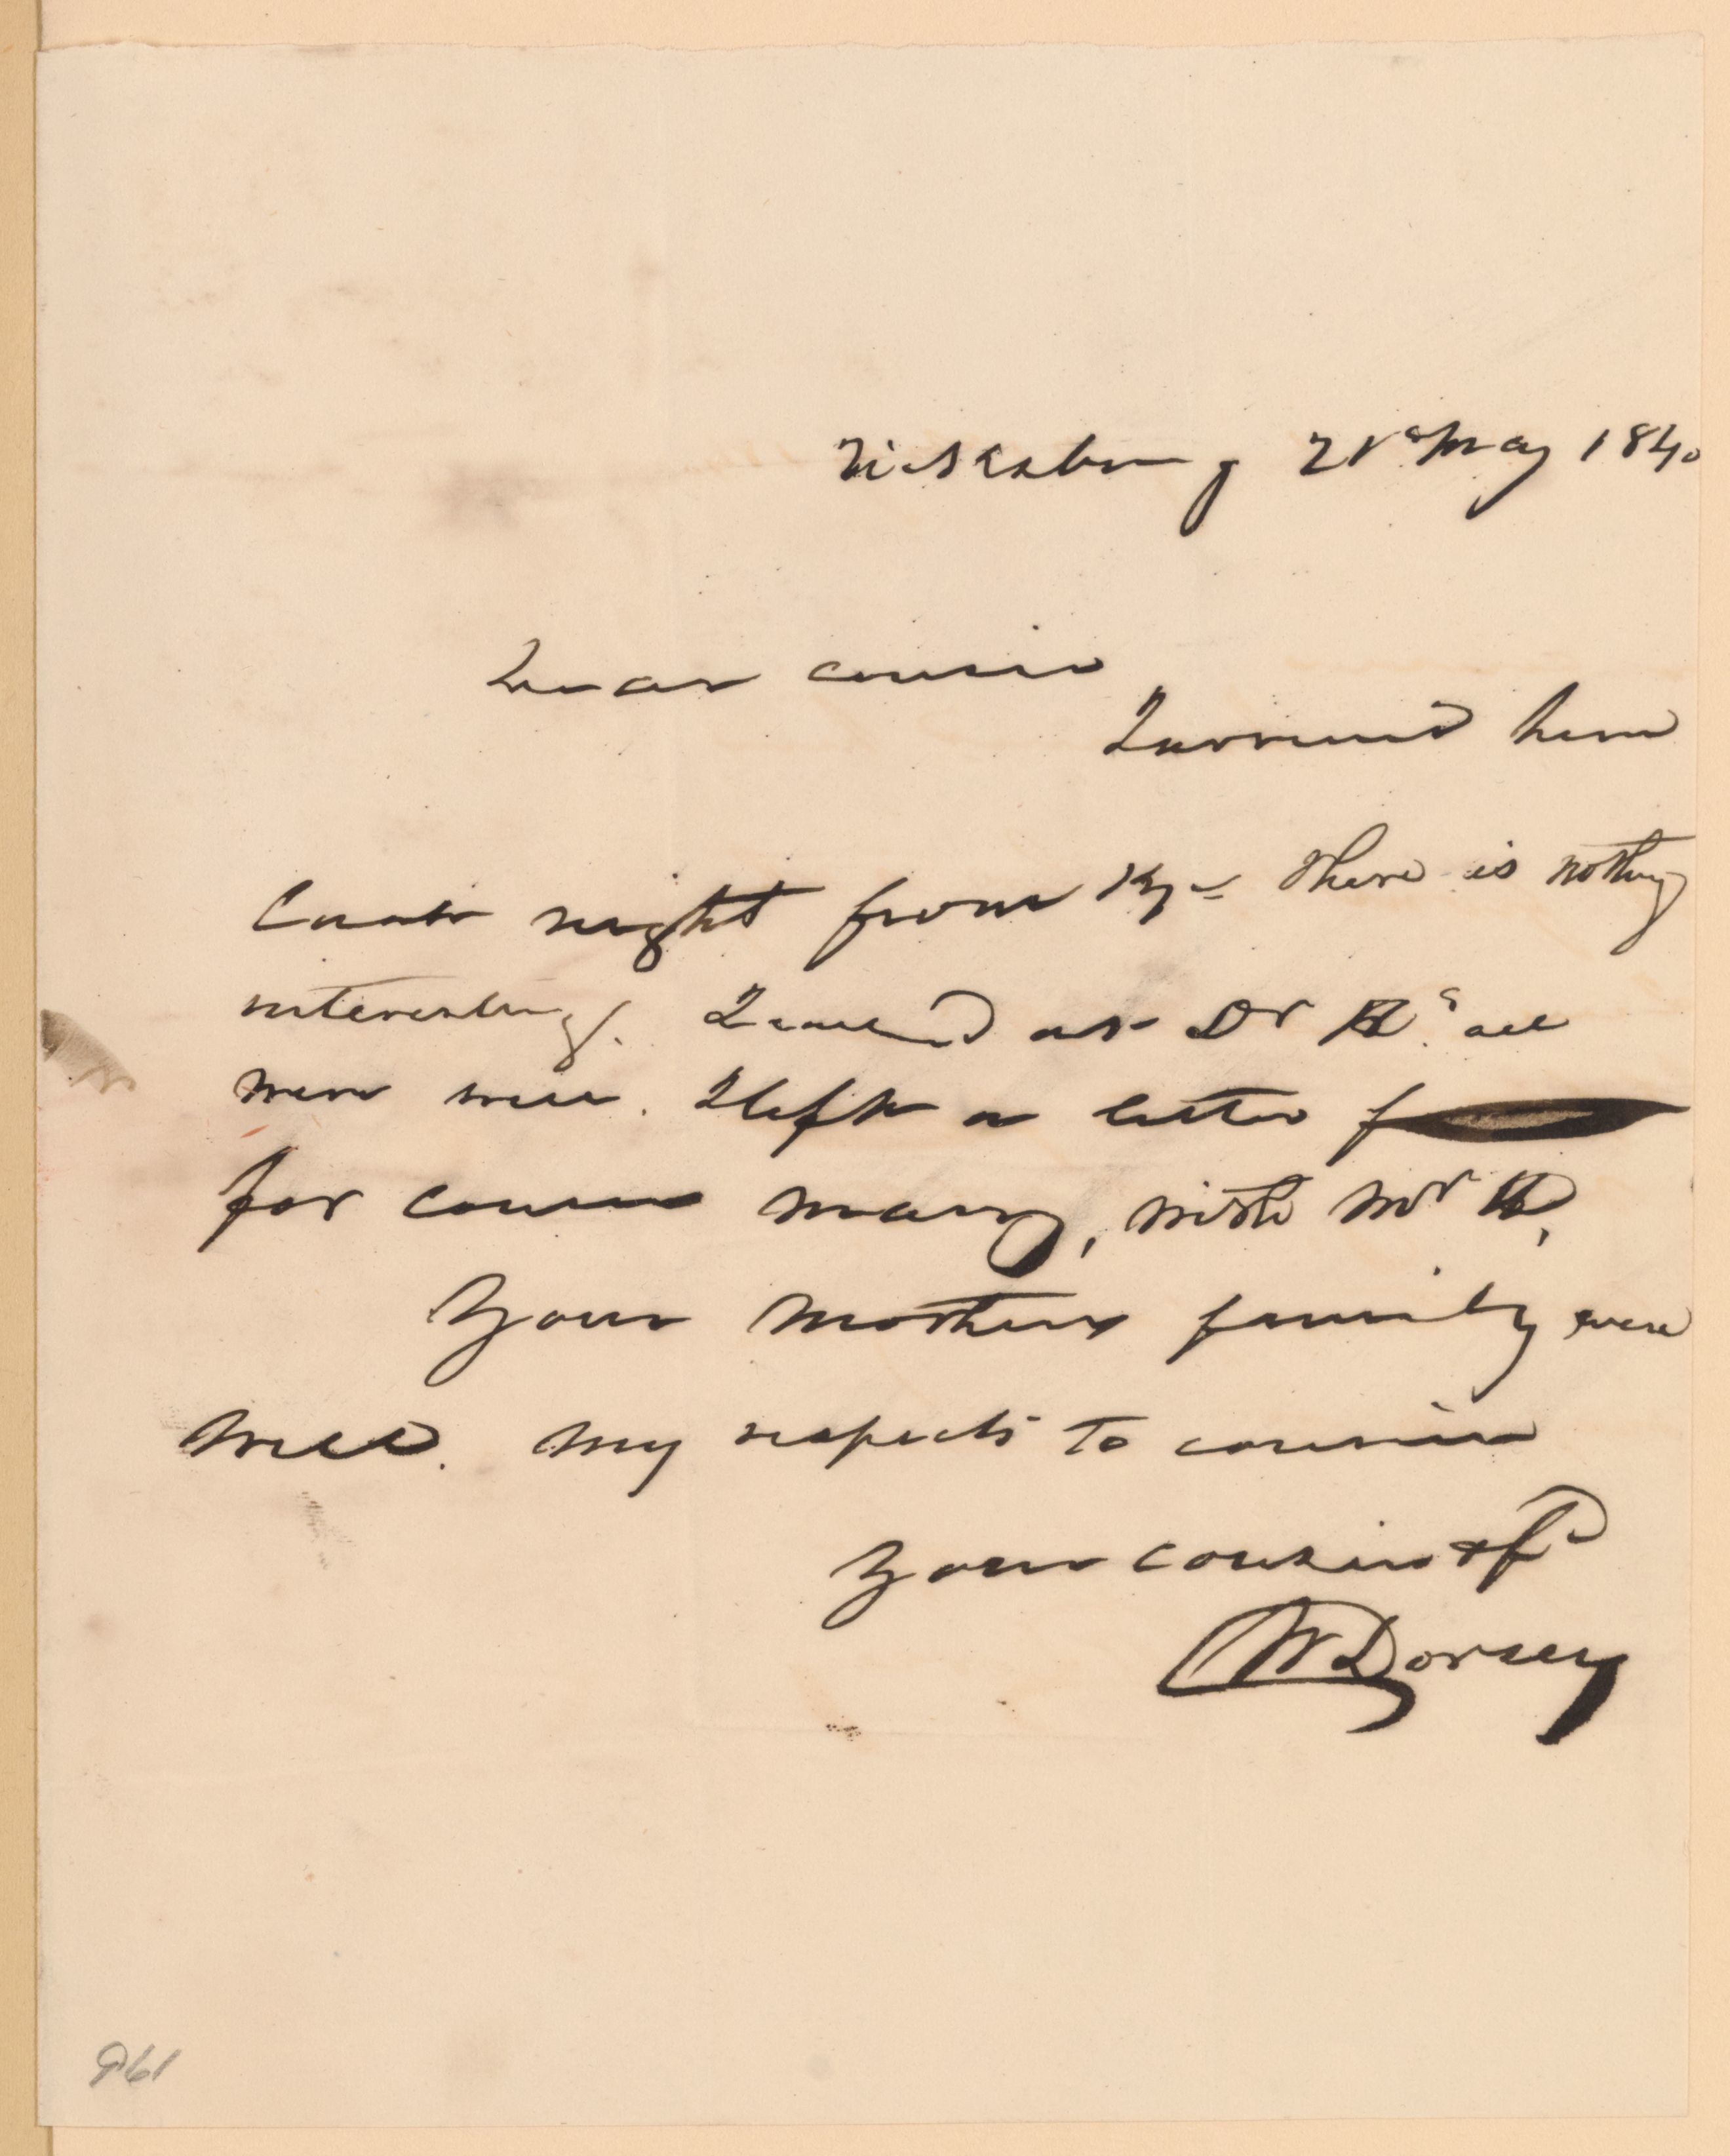 Vicksburg 21st May 1840
Dear cousin
I arrived here
last night from Ky- there is nothing
interesting. I called at Dr H's. all
were well. I left a letter
for cousin mary, with Mr H,
Your Mothers family were
well. My respects to cousin
Your cousin & fd
W Dorsey
961